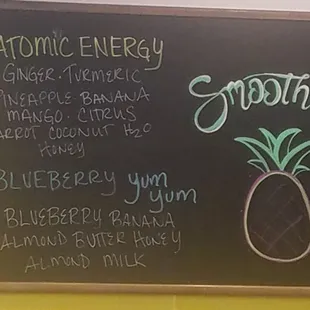 ATOMIC ENERGY
GINGER · TURMERIC
PINEAPPLE BANANA
MANGO · CITRUS
CARROT COCONUT H2O
HONEY
Smooth
BLUEBERRY yum
yum
BLUEBERRY BANANA
ALMOND BUTTER HONEY
ALMOND MILK